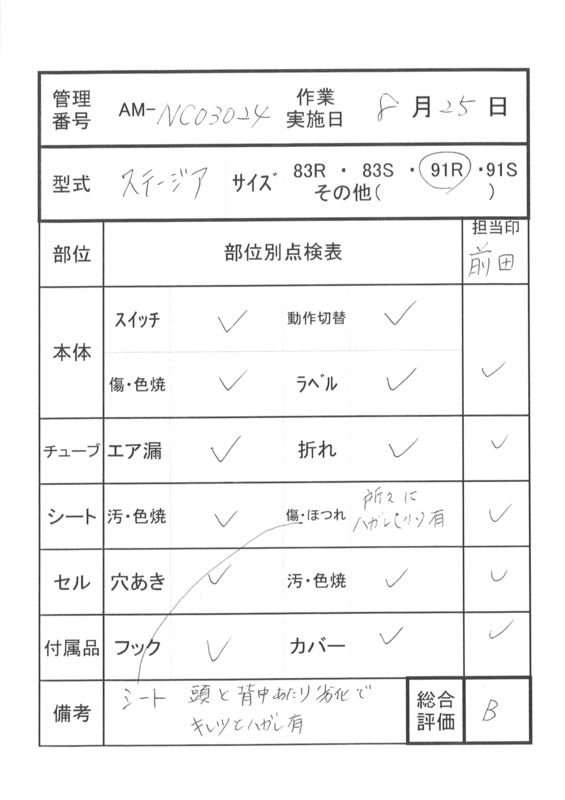 管理番号 AM-NC03024 作業実施日 8月25日
型式 ステージア サイズ 83R ・ 83S ・ 91R ・ 91S
その他( )
部位 部位別点検表 担当印
前田
本体 スイッチ ✓ 動作切替 ✓
傷・色焼 ✓ ラベル ✓ ✓
チューブ エア漏 ✓ 折れ ✓ ✓
シート 汚・色焼 ✓ 傷・ほつれ 所々に
ハガレ 有 ✓
セル 穴あき ✓ 汚・色焼 ✓ ✓
付属品 フック ✓ カバー ✓ ✓
備考 シート 頭と背中あたり劣化で
キレツとハガレ有
総合評価 B